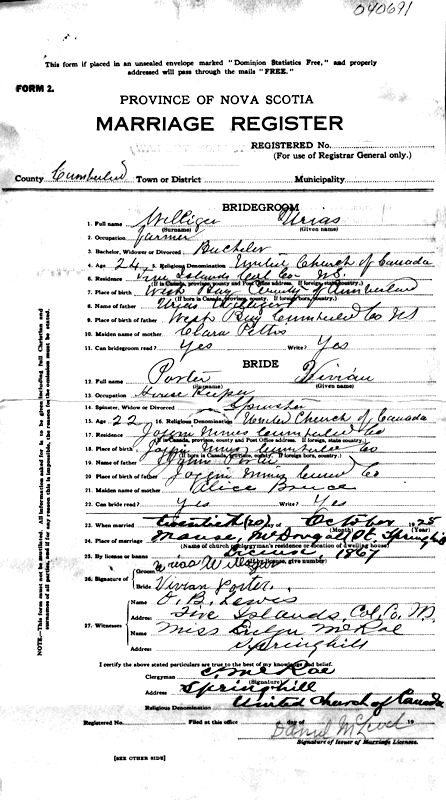 040691
This form if placed in an unsealed envelope marked "Dominion Statistics Free," and properly
addressed will pass through the mails "FREE."
FORM 2.
PROVINCE OF NOVA SCOTIA
MARRIAGE REGISTER
REGISTERED No.
(For use of Registrar General only.)
County Cumberland Town or District Municipality
BRIDEGROOM
1. Full name Williger Urias
(Surname) (Given name)
2. Occupation farmer
3. Bachelor, Widower or Divorced Bachelor
4. Age 24 5. Religious Denomination United Church of Canada
6. Residence Five Islands Col. Co. N.S.
(If in Canada, province, county and Post Office address. If foreign, state country)
7. Place of birth West Bay County of Cumberland
(If born in Canada, province, county. If foreign born, country)
8. Name of father Urias Williger
9. Place of birth of father West Bay Cumberland Co NS
10. Maiden name of mother Clara Pettis
11. Can bridegroom read? Yes Write? Yes
BRIDE
12. Full name Porter Vivian
(Surname) (Given name)
13. Occupation House Keeper
14. Spinster, Widow or Divorced Spinster
15. Age 22 16. Religious Denomination United Church of Canada
17. Residence Cumberland Co
(If in Canada, province, county and Post Office address. If foreign, state country)
18. Place of birth Cumberland Co
(If born in Canada, province, county. If foreign born, country)
19. Name of father Porter
20. Place of birth of father Cumb Co
21. Maiden name of mother Alice Bruce
22. Can bride read? Yes Write? Yes
23. When married twentieth (20) day of October 1928
(Month) (Year)
24. Place of marriage Manse, McDougall St. Springhill
(Name of church or clergyman's residence or location of dwelling house)
25. By license or banns License 1867
(If by license, give number)
26. Signature of Groom Urias Williger
Bride Vivian Porter
27. Witnesses Name O. B. Lewis
Address Five Islands, Col. Co. N.S.
Name Miss Evelyn McRae
Address Springhill
I certify the above stated particulars are true to the best of my knowledge and belief.
Clergyman McRae
(Signature)
Address Springhill
Religious Denomination United Church of Canada
Registered No. Filed at this office day of 19
Daniel McLeod
Signature of Issuer of Marriage Licenses.
[SEE OTHER SIDE]
NOTE.—This form must not be mutilated. All information asked for is to be given including full Christian and
surnames of all parties and if for any reason this is impossible, the reason for the omission must be stated.